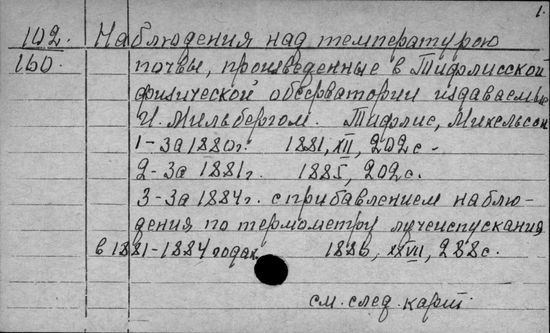 1.
102. Наблюдения над температурою
160. почвы, произведенные в Тифлисской
физической обсерватории издаваемые
И. Мильбергом. Тифлис, Михельсон
1-За 1880г. 1881, XII, 202с-
2-За 1881г. 1885, 202с.
3-За 1884г. с прибавлением наблю-
дения по термометру лучеиспускания
в 1881-1884 годах 1886, XXVII, 288с.
см. след. карт.